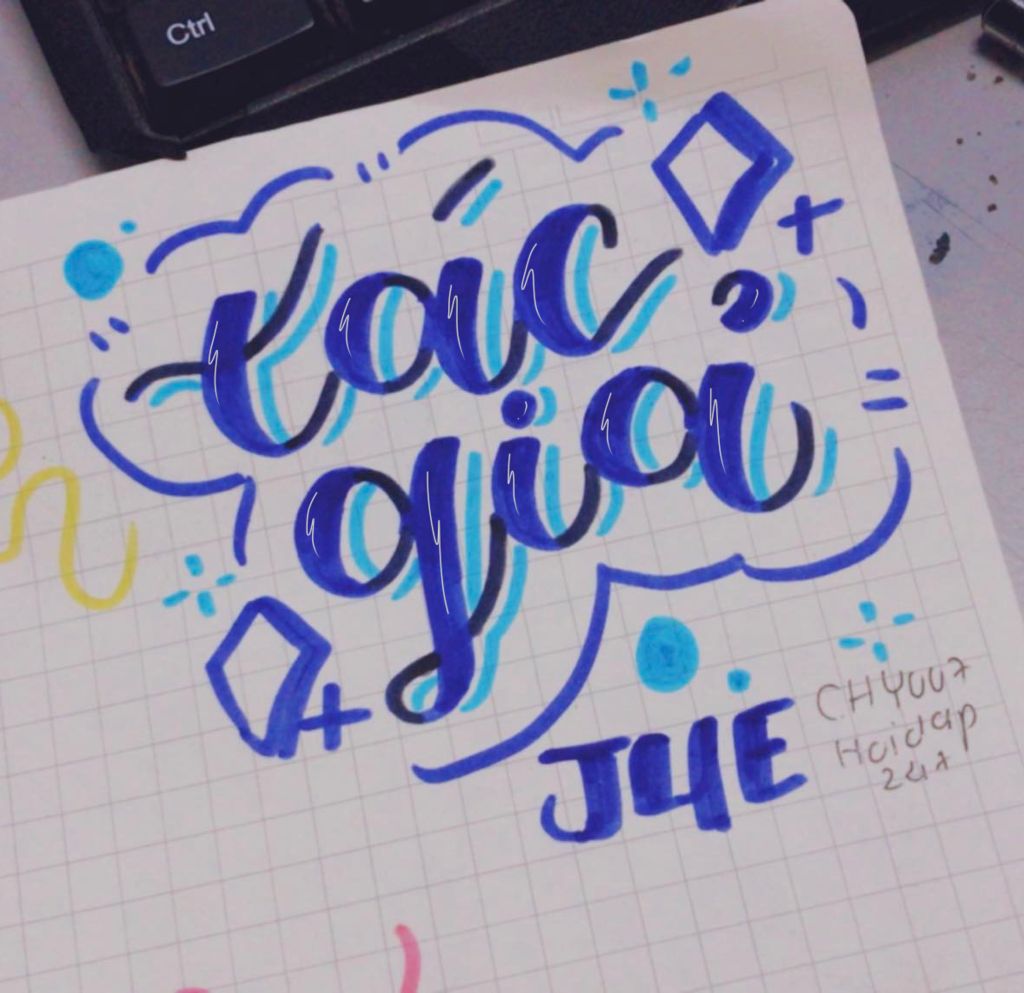 Ctrl
tác
giả
J4E
CHY007
Hoidap
247